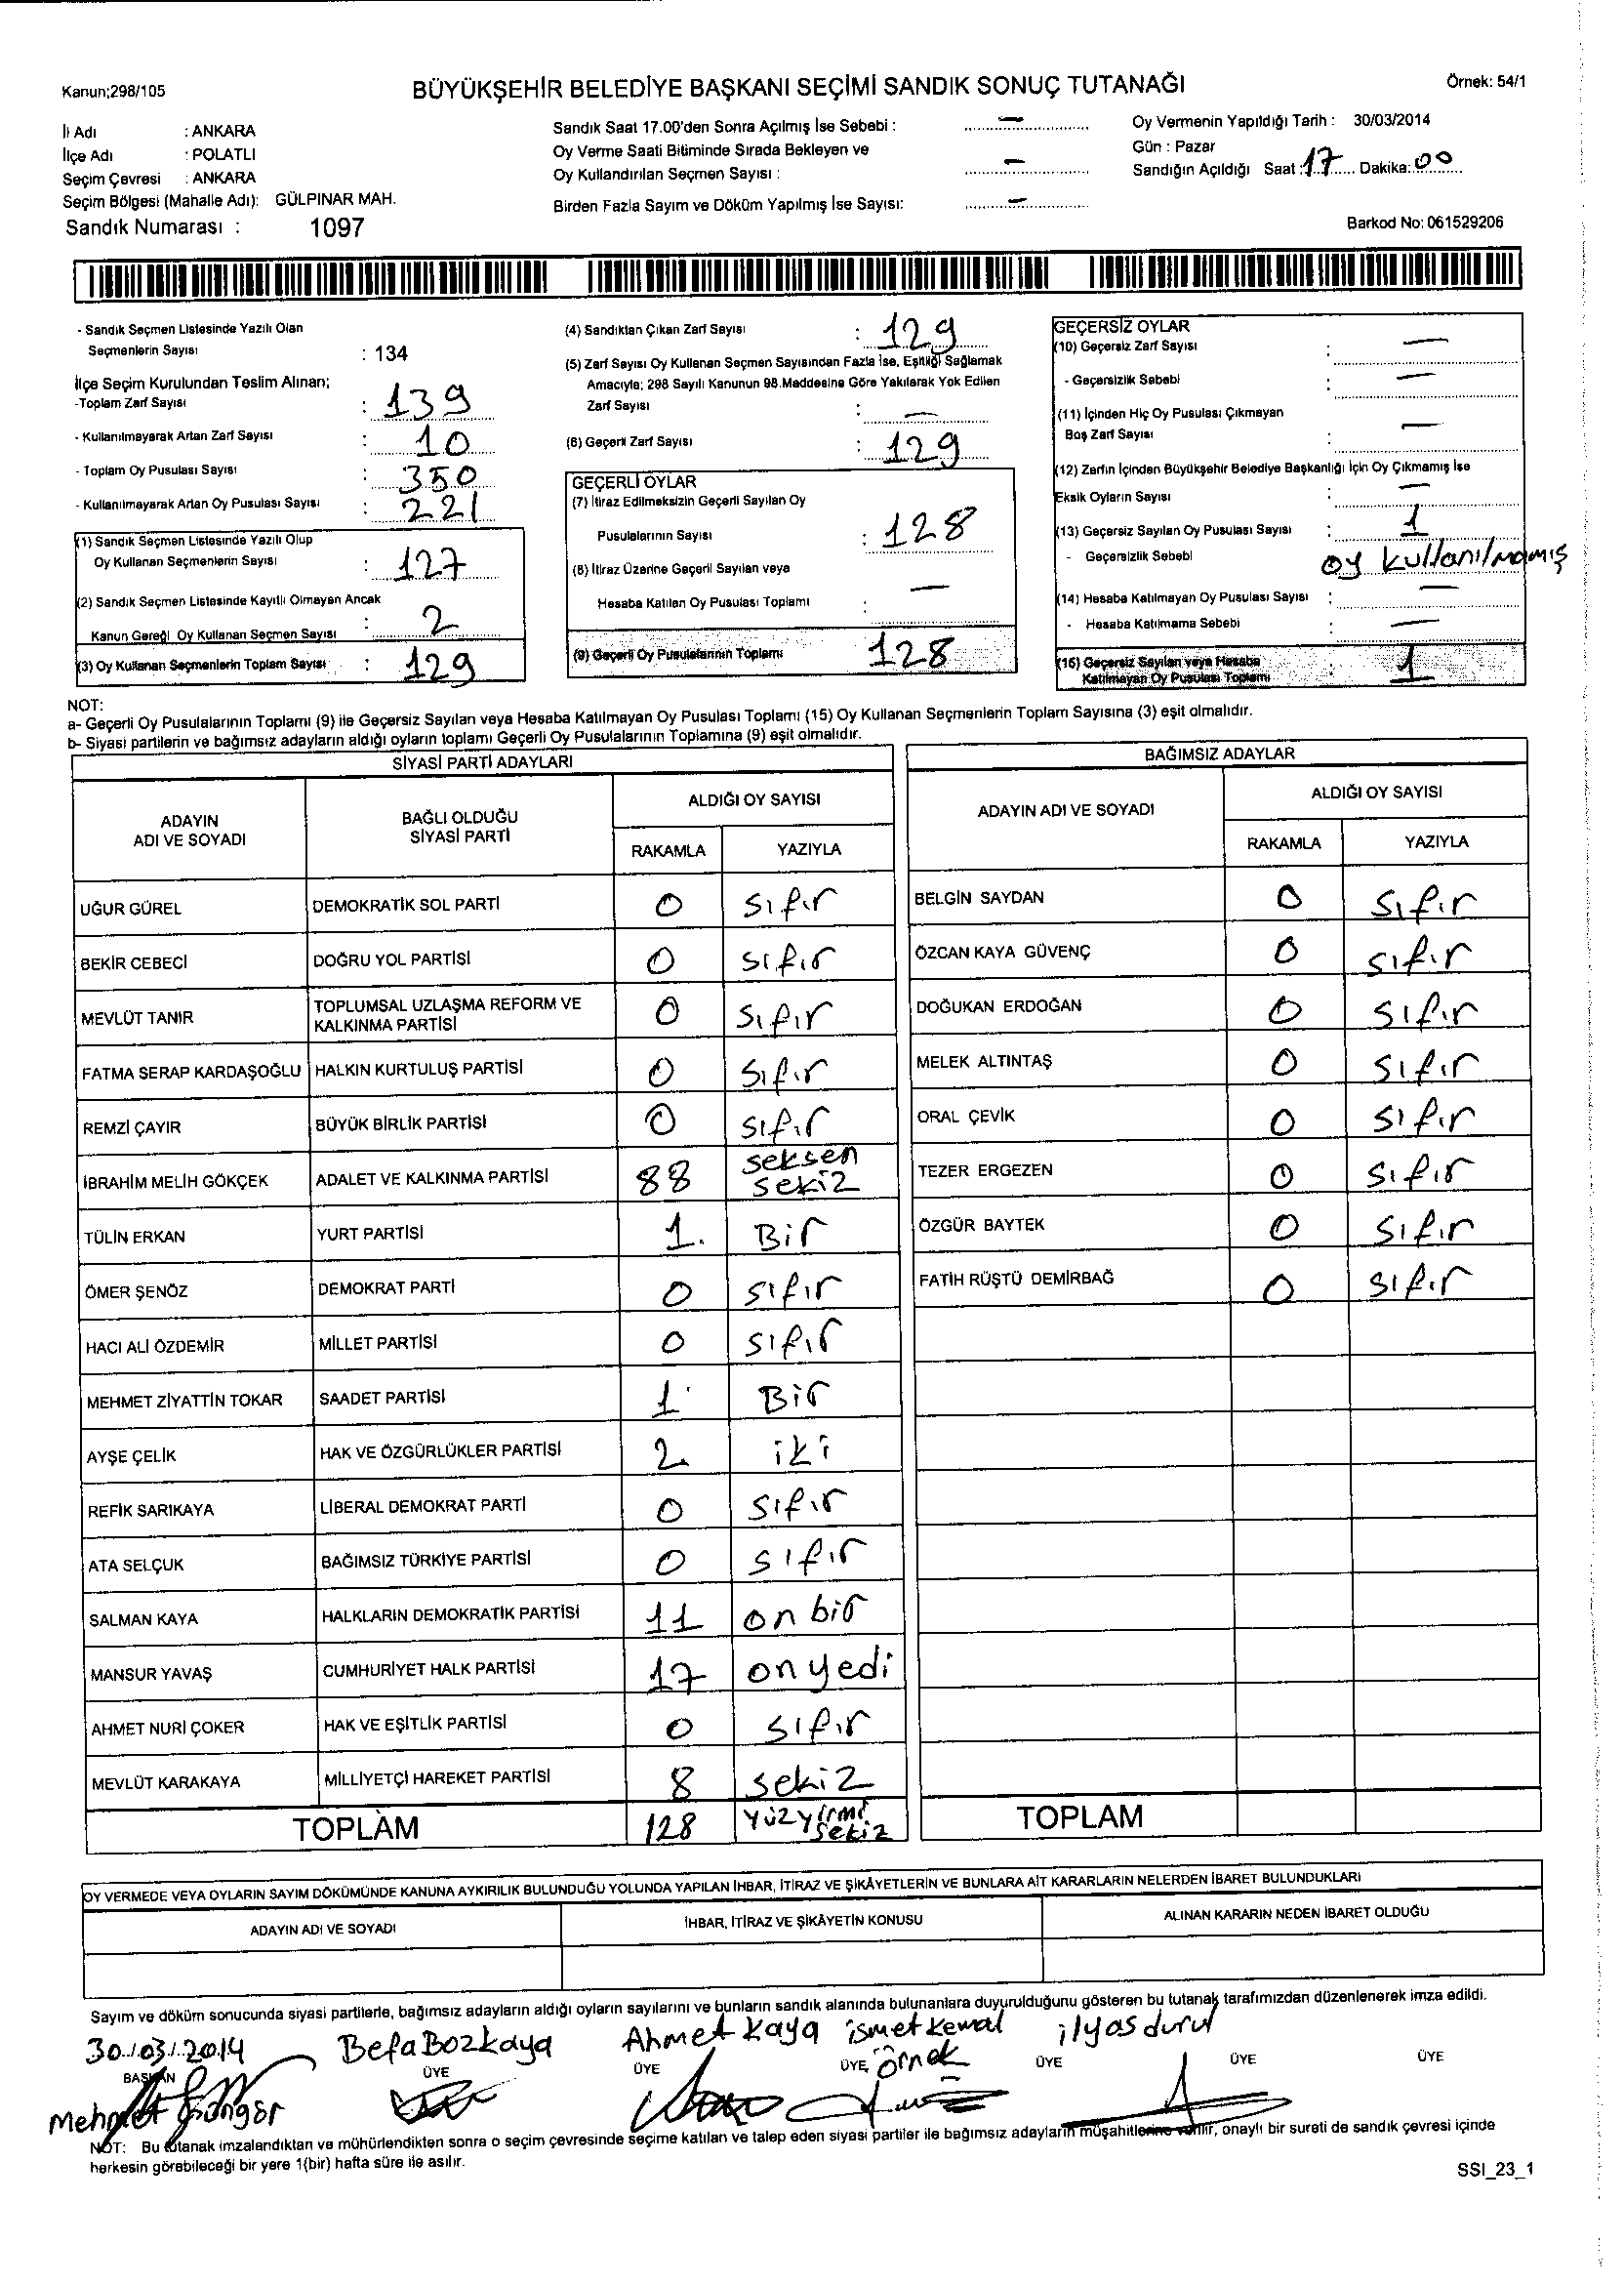 Kanun;298/105
BÜYÜKŞEHİR BELEDİYE BAŞKANI SEÇİMİ SANDIK SONUÇ TUTANAĞI
Örnek: 54/1
İl Adı : ANKARA
İlçe Adı : POLATLI
Seçim Çevresi : ANKARA
Seçim Bölgesi (Mahalle Adı): GÜLPINAR MAH.
Sandık Numarası : 1097
Sandık Saat 17.00'den Sonra Açılmış İse Sebebi : —
Oy Verme Saati Bitiminde Sırada Bekleyen ve
Oy Kullandırılan Seçmen Sayısı : —
Birden Fazla Sayım ve Döküm Yapılmış İse Sayısı: —
Oy Vermenin Yapıldığı Tarih : 30/03/2014
Gün : Pazar
Sandığın Açıldığı Saat : 17 Dakika: 00
Barkod No: 061529206
- Sandık Seçmen Listesinde Yazılı Olan
Seçmenlerin Sayısı : 134
İlçe Seçim Kurulundan Teslim Alınan;
-Toplam Zarf Sayısı : 139
- Kullanılmayarak Artan Zarf Sayısı : 10
- Toplam Oy Pusulası Sayısı : 350
- Kullanılmayarak Artan Oy Pusulası Sayısı : 221
(1) Sandık Seçmen Listesinde Yazılı Olup
Oy Kullanan Seçmenlerin Sayısı : 127
(2) Sandık Seçmen Listesinde Kayıtlı Olmayan Ancak
Kanun Gereği Oy Kullanan Seçmen Sayısı : 2
(3) Oy Kullanan Seçmenlerin Toplam Sayısı : 129
(4) Sandıktan Çıkan Zarf Sayısı : 129
(5) Zarf Sayısı Oy Kullanan Seçmen Sayısından Fazla İse, Eşitliği Sağlamak
Amacıyla; 298 Sayılı Kanunun 98.Maddesine Göre Yakılarak Yok Edilen
Zarf Sayısı : —
(6) Geçerli Zarf Sayısı : 129
GEÇERLİ OYLAR
(7) İtiraz Edilmeksizin Geçerli Sayılan Oy
Pusulalarının Sayısı : 128
(8) İtiraz Üzerine Geçerli Sayılan veya
Hesaba Katılan Oy Pusulası Toplamı : —
(9) Geçerli Oy Pusulalarının Toplamı 128
GEÇERSİZ OYLAR
(10) Geçersiz Zarf Sayısı : —
- Geçersizlik Sebebi : —
(11) İçinden Hiç Oy Pusulası Çıkmayan
Boş Zarf Sayısı : —
(12) Zarfın İçinden Büyükşehir Belediye Başkanlığı İçin Oy Çıkmamış İse
Eksik Oyların Sayısı : —
(13) Geçersiz Sayılan Oy Pusulası Sayısı : 1
- Geçersizlik Sebebi oy kullanılmamış
(14) Hesaba Katılmayan Oy Pusulası Sayısı : —
- Hesaba Katılmama Sebebi : —
(15) Geçersiz Sayılan veya Hesaba
Katılmayan Oy Pusulası Toplamı : 1
NOT:
a- Geçerli Oy Pusulalarının Toplamı (9) ile Geçersiz Sayılan veya Hesaba Katılmayan Oy Pusulası Toplamı (15) Oy Kullanan Seçmenlerin Toplam Sayısına (3) eşit olmalıdır.
b- Siyasi partilerin ve bağımsız adayların aldığı oyların toplamı Geçerli Oy Pusulalarının Toplamına (9) eşit olmalıdır.
SİYASİ PARTİ ADAYLARI
ADAYIN ADI VE SOYADI BAĞLI OLDUĞU SİYASİ PARTİ ALDIĞI OY SAYISI
RAKAMLA YAZIYLA
UĞUR GÜREL DEMOKRATİK SOL PARTİ 0 sıfır
BEKİR CEBECİ DOĞRU YOL PARTİSİ 0 sıfır
MEVLÜT TANIR TOPLUMSAL UZLAŞMA REFORM VE KALKINMA PARTİSİ 0 sıfır
FATMA SERAP KARDAŞOĞLU HALKIN KURTULUŞ PARTİSİ 0 sıfır
REMZİ ÇAYIR BÜYÜK BİRLİK PARTİSİ 0 sıfır
İBRAHİM MELİH GÖKÇEK ADALET VE KALKINMA PARTİSİ 88 seksen sekiz
TÜLİN ERKAN YURT PARTİSİ 1. Bir
ÖMER ŞENÖZ DEMOKRAT PARTİ 0 sıfır
HACI ALİ ÖZDEMİR MİLLET PARTİSİ 0 sıfır
MEHMET ZİYATTİN TOKAR SAADET PARTİSİ 1 Bir
AYŞE ÇELİK HAK VE ÖZGÜRLÜKLER PARTİSİ 2 iki
REFİK SARIKAYA LİBERAL DEMOKRAT PARTİ 0 sıfır
ATA SELÇUK BAĞIMSIZ TÜRKİYE PARTİSİ 0 sıfır
SALMAN KAYA HALKLARIN DEMOKRATİK PARTİSİ 11 on bir
MANSUR YAVAŞ CUMHURİYET HALK PARTİSİ 17 on yedi
AHMET NURİ ÇOKER HAK VE EŞİTLİK PARTİSİ 0 sıfır
MEVLÜT KARAKAYA MİLLİYETÇİ HAREKET PARTİSİ 8 sekiz
TOPLAM 128 yüz yirmi sekiz
BAĞIMSIZ ADAYLAR
ADAYIN ADI VE SOYADI ALDIĞI OY SAYISI
RAKAMLA YAZIYLA
BELGİN SAYDAN 0 sıfır
ÖZCAN KAYA GÜVENÇ 0 sıfır
DOĞUKAN ERDOĞAN 0 sıfır
MELEK ALTINTAŞ 0 sıfır
ORAL ÇEVİK 0 sıfır
TEZER ERGEZEN 0 sıfır
ÖZGÜR BAYTEK 0 sıfır
FATİH RÜŞTÜ DEMİRBAĞ 0 sıfır
TOPLAM
OY VERMEDE VEYA OYLARIN SAYIM DÖKÜMÜNDE KANUNA AYKIRILIK BULUNDUĞU YOLUNDA YAPILAN İHBAR, İTİRAZ VE ŞİKÂYETLERİN VE BUNLARA AİT KARARLARIN NELERDEN İBARET BULUNDUKLARI
ADAYIN ADI VE SOYADI İHBAR, İTİRAZ VE ŞİKÂYETİN KONUSU ALINAN KARARIN NEDEN İBARET OLDUĞU
Sayım ve döküm sonucunda siyasi partilerle, bağımsız adayların aldığı oyların sayılarını ve bunların sandık alanında bulunanlara duyurulduğunu gösteren bu tutanak tarafımızdan düzenlenerek imza edildi.
30/03/2014 Befa Bozkaya Ahmet Kaya ismet Kemal örnek ilyas durul
BAŞKAN ÜYE ÜYE ÜYE ÜYE ÜYE ÜYE
Mehmet Güngör
NOT: Bu tutanak imzalandıktan ve mühürlendikten sonra o seçim çevresinde seçime katılan ve talep eden siyasi partiler ile bağımsız adayların müşahitlerine verilir, onaylı bir sureti de sandık çevresi içinde
herkesin görebileceği bir yere 1(bir) hafta süre ile asılır.
SSI_23_1